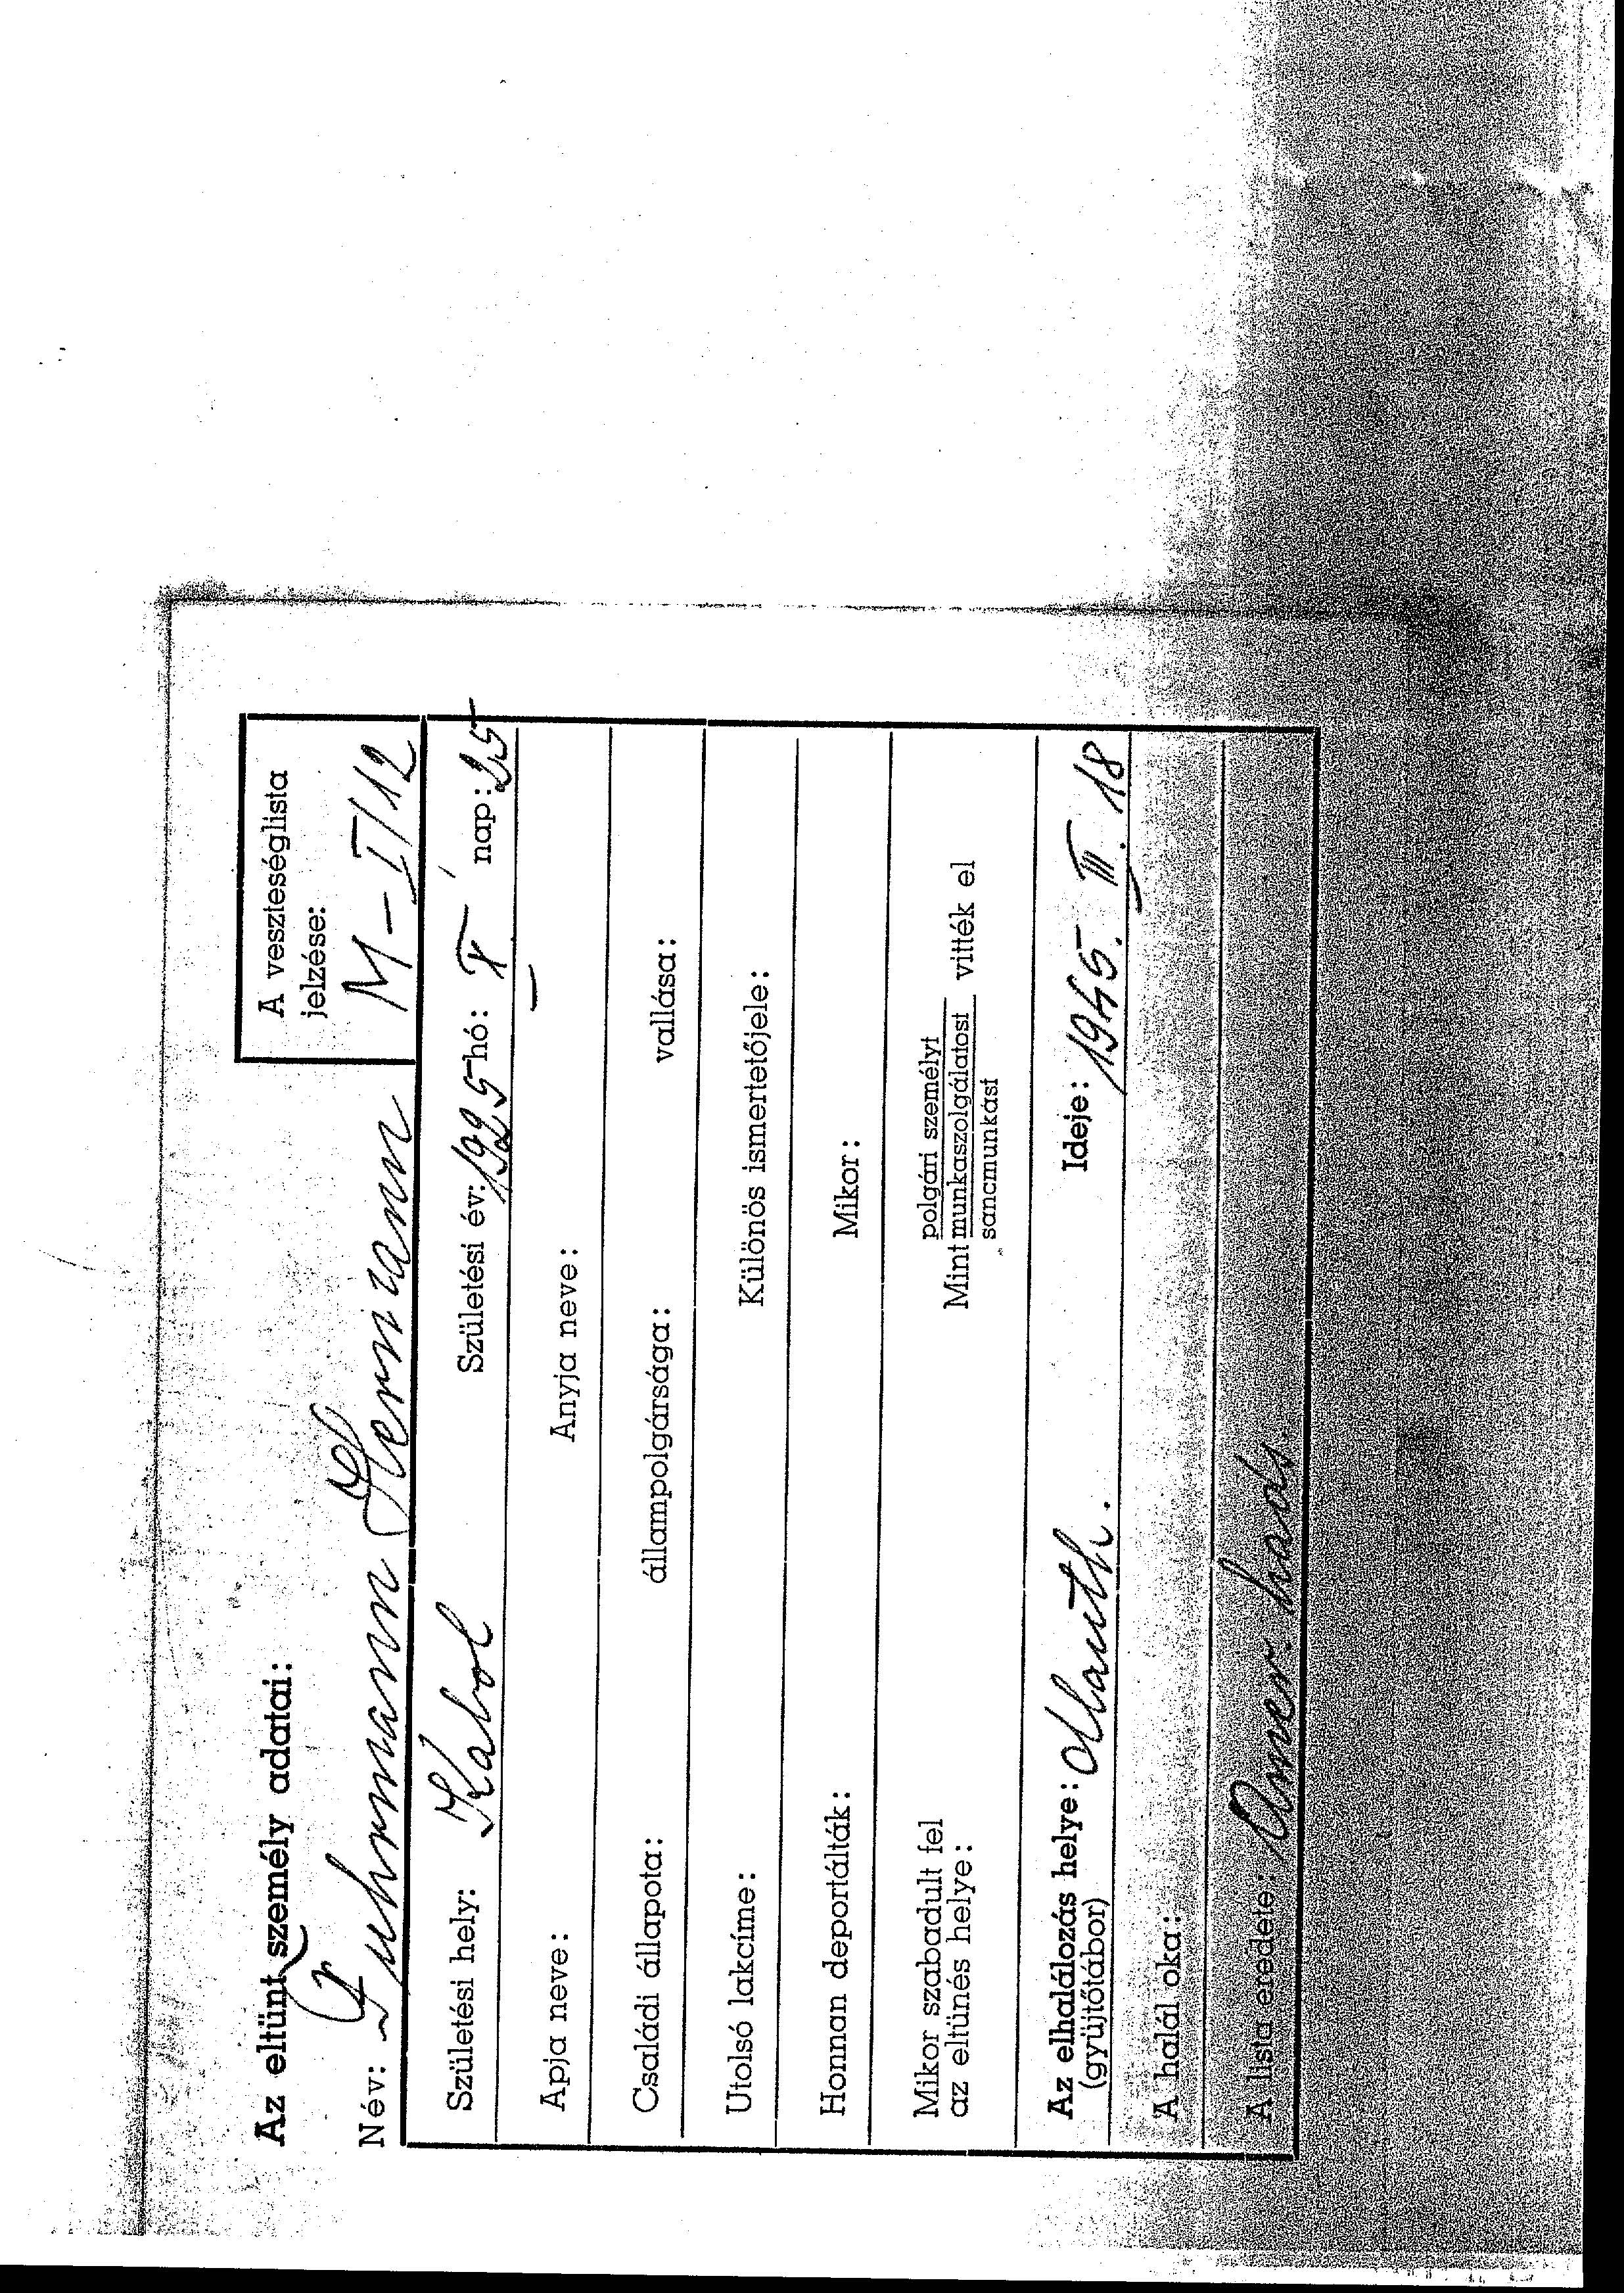 Az eltünt személy adatai:
A veszteséglista
jelzése:
M-I/12
Név: Fuhrmann Hermann
Születési hely: Kabol Születési év: 1925 hó: nap: 25
Apja neve: Anyja neve:
Családi állapota: állampolgársága: vallása:
Utolsó lakcíme: Különös ismertetőjele:
Honnan deportálták: Mikor:
Mikor szabadult fel
az eltünés helye:
polgári személyt
Mint munkaszolgálatost vitték el
sancmunkást
Az elhalálozás helye: Mauth. Ideje: 1945. III. 18
(gyüjtőtábor)
A halál oka:
A lista eredete: Amer. hads.